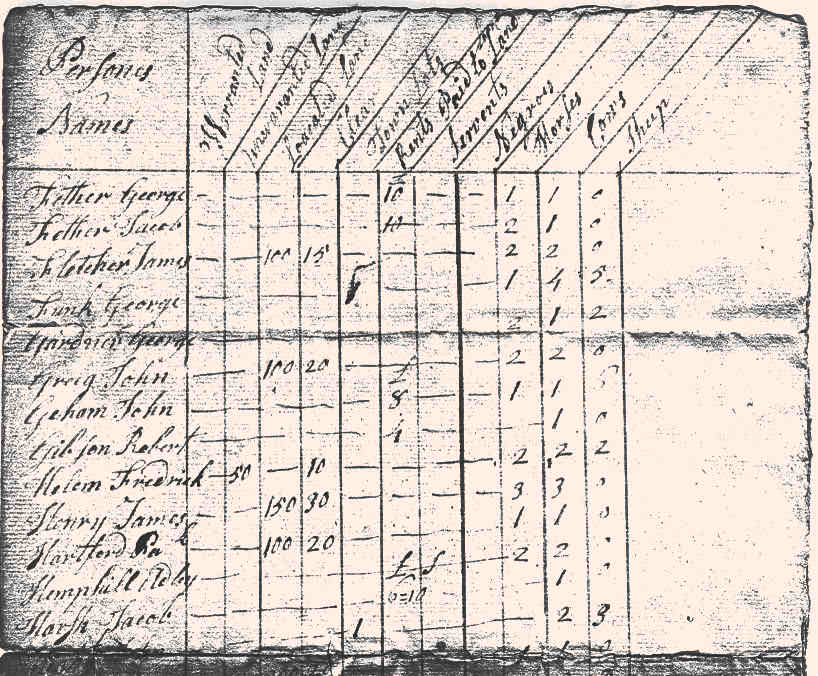 Persones Names Warranted Land Unwarranted Land Located Land Clear Town Lots Rents Paid to Land Servents Negroes Horses Cows Sheep
Fether George — — — — 10 — — 1 1 0
Fether Jacob — — — — 10 — — 2 1 0
Fletcher James — 100 15 — — — — 2 2 0
Funk George — — — — — — 1 4 5
Gardner George 2 1 2
Greig John — 100 20 — — — 2 2 0
Geham John — — — — £ 8 — — 1 1
Gibson Robert — — — — 1 0
Helem Fredrick — 50 — 10 — — — — 2 2 2
Henry James — 150 30 — — — — 3 3 0
Hartford — 100 20 — — — — 1 1 0
Hemphill — — — — — 2 2 0
£ S
6=10 1 0
Harsh Jacob — — — 1 — — 2 3